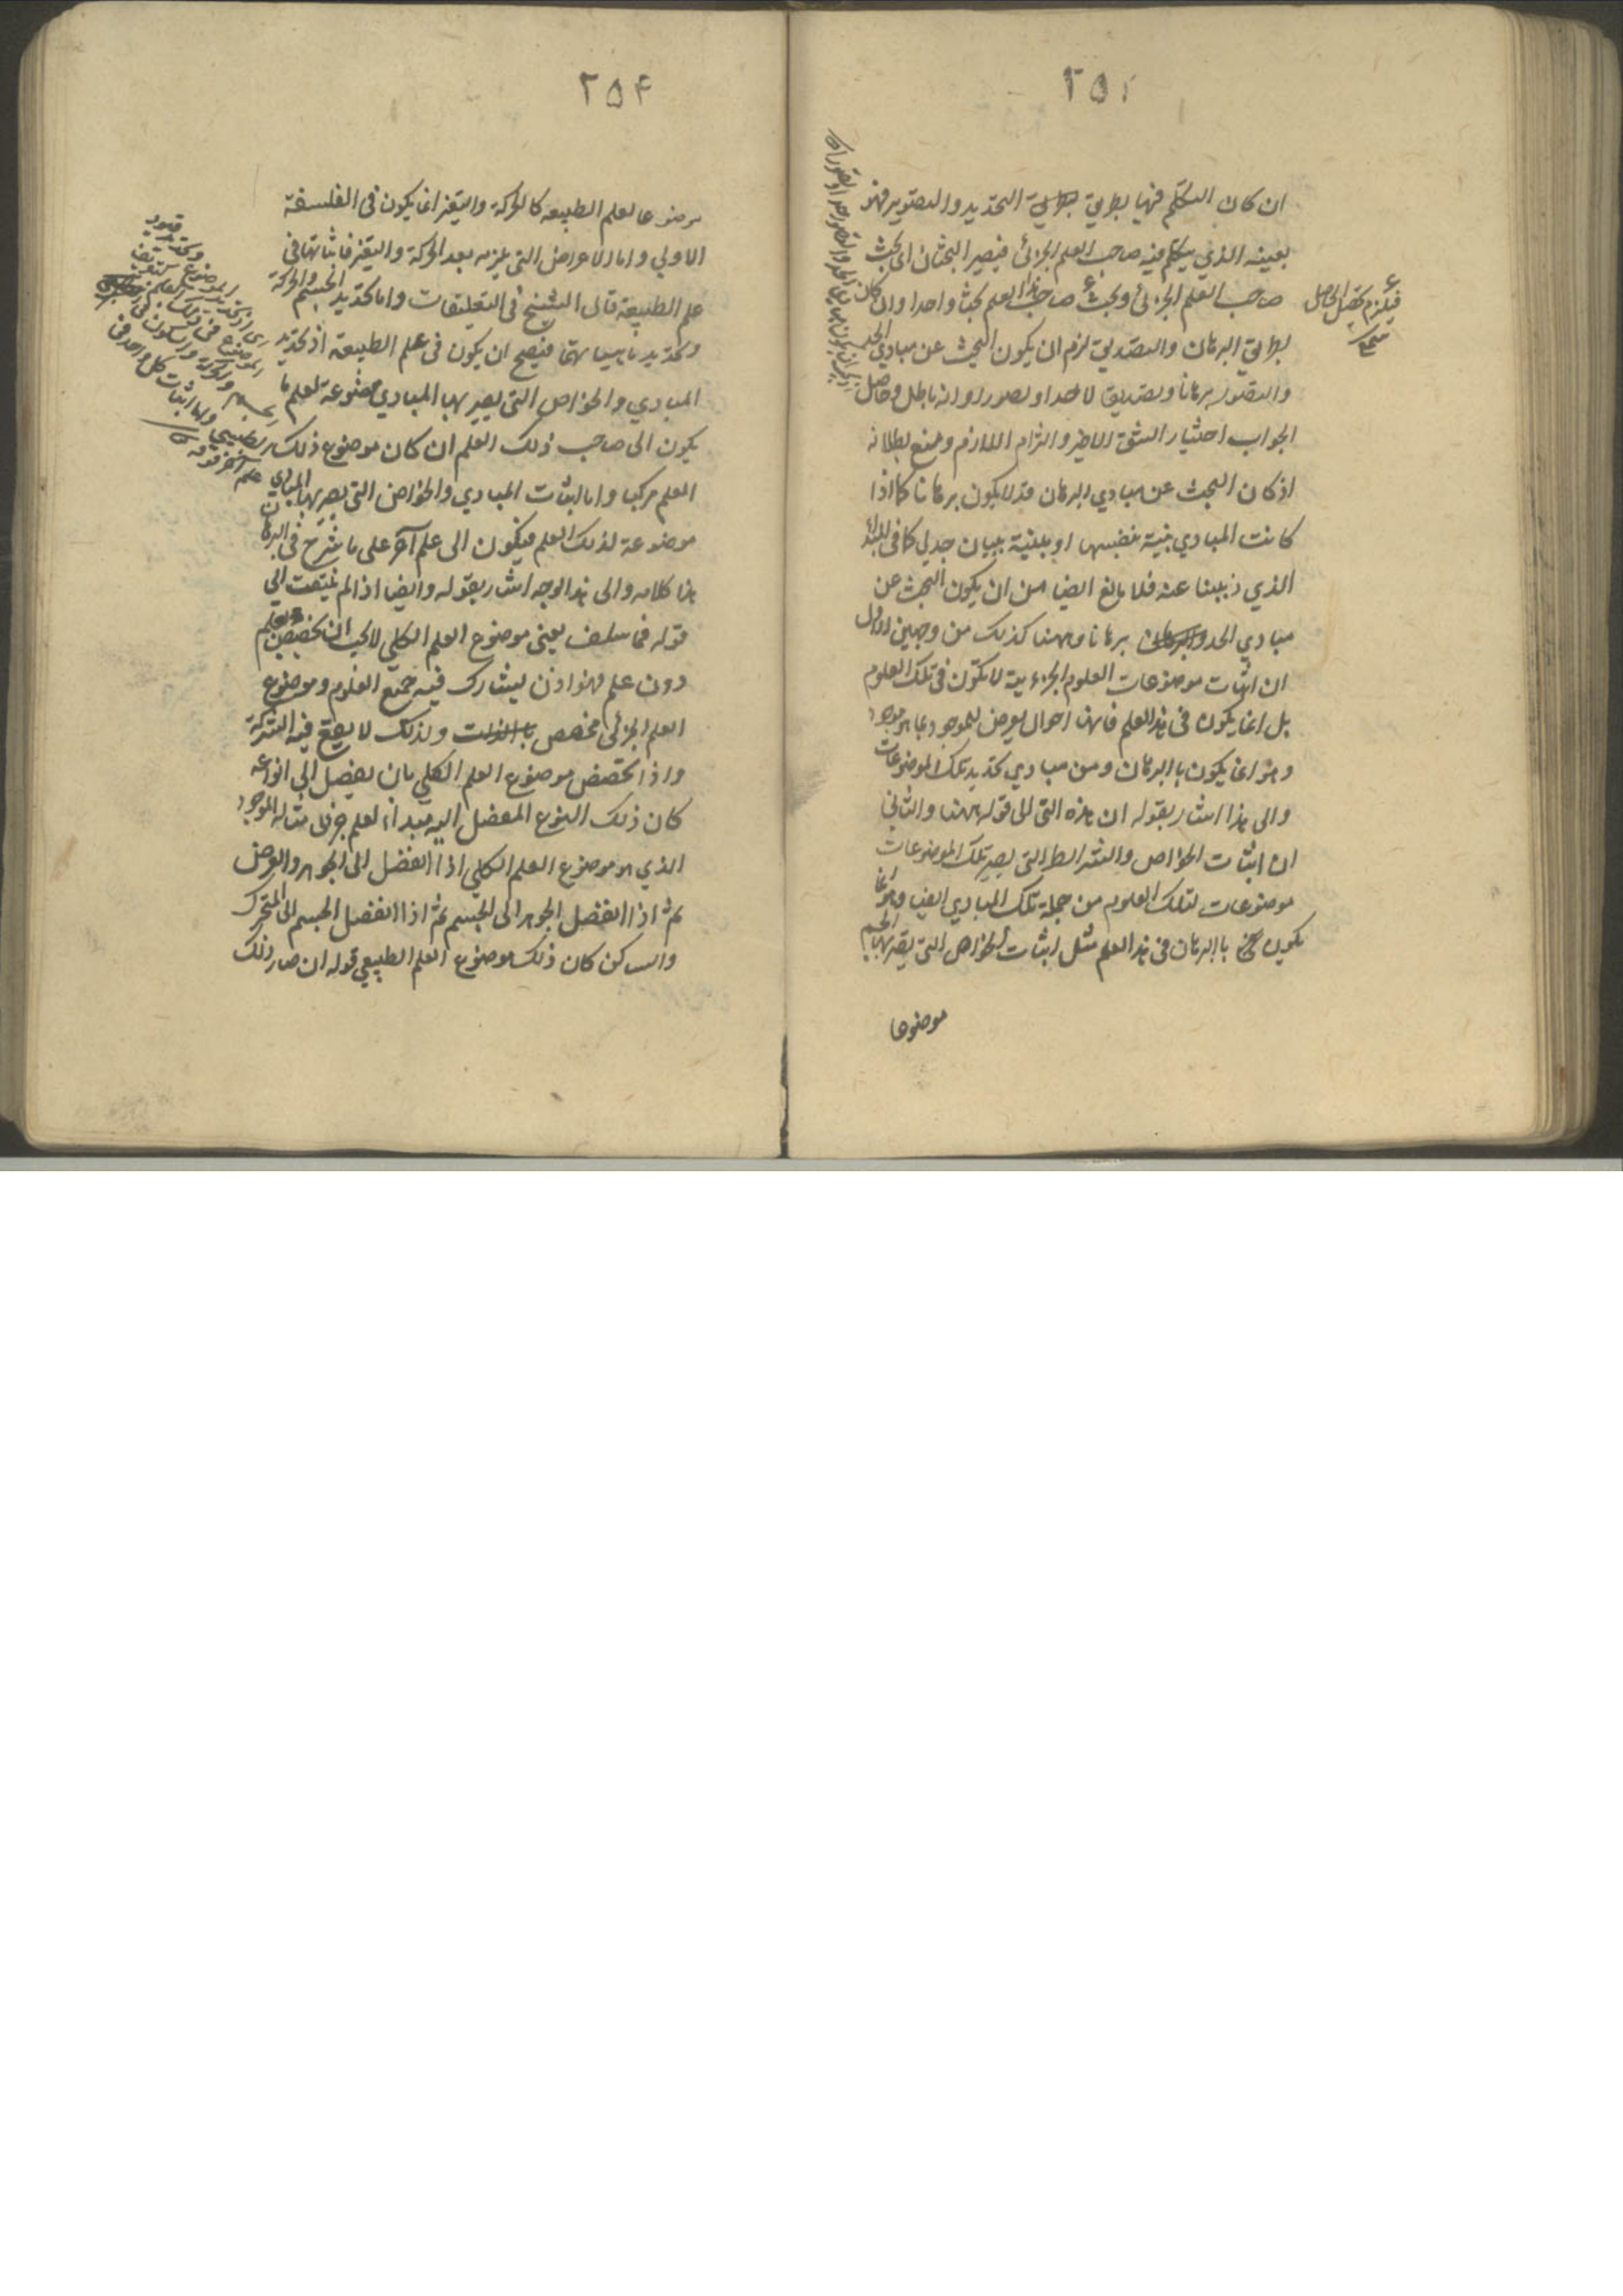 ٢٥
ان كان التكلم فيها بطريق التحديد والتصوير فهو
بعينه الذي يتكلم فيه صاحب العلم الجزئي فيصير البحثان اى بحث
صاحب العلم الجزئي وبحث صاحب هذا العلم بحثا واحدا وان كان
بطريق البرهان والتصديق لزم ان يكون البحث عن مبادي الحد
والتصور برهانا وتصديقا لا حدا وتصورا وانه باطل وحاصل
الجواب اختيار الشق الاخير والتزام اللازم ومنع بطلانه
اذ كان البحث عن مبادي البرهان قد لا يكون برهانا كما اذا
كانت المبادي بينة بنفسها او مبينة ببيان جدلي كما في
الذي ذهبنا عنه فلا مانع ايضا من ان يكون البحث عن
مبادي الحد برهانا وههنا كذلك من وجهين الاول
ان اثبات موضوعات العلوم الجزءية لا تكون في تلك العلوم
بل انما يكون في هذا العلم فانها احوال يعرض للموجود بما هو موجود
وهو انما يكون باالبرهان ومن مبادي تحديد تلك الموضوعات
والى هذا اشار بقوله ان هذه التي الى قوله ههنا والثاني
ان اثبات الخواص والشرائط التي بصير تلك الموضوعات
موضوعات لتلك العلوم من جملة تلك المبادي ايضا وهو انما
يكون باالبرهان في هذا العلم مثل اثبات الخواص التي يصير بها الجسم
موضوعا
فيلزم تحصيل الحاصل
٢٥۴
موضوعا لعلم الطبيعه كالحركة والتغير انما يكون في الفلسفة
الاولي واما الاعراض التي يلزمه بعد الحركة والتغير فاثباتها في
علم الطبيعة قال الشيخ في التعليقات واما تحديد الجسم والحركة
وتحديد ماهياتها فيصح ان يكون في علم الطبيعة اذ تحديد
المبادي والخواص التي يصير بها المبادي موضوعة لعلم ما
يكون الى صاحب ذلك العلم ان كان موضوع ذلك
العلم مركبا واما اثبات المبادي والخواص التي يصير بها المبادي
موضوعة لذلك العلم فيكون الى علم آخر على ما شرح في البرهان
هذا كلامه والى هذا الوجه اشار بقوله وايضا اذا لم يلتفت الى
قوله فما سلف يعني موضوع العلم الكلي لا يجب ان تخصيص بعلم
دون علم فهو اذن يشارك فيه جميع العلوم وموضوع
العلم الجزئي مخصص بالذات ولذلك لا يصح فيه الشركة
واذا تخصص موضوع العلم الكلي بان يفصل الى انواعه
كان ذلك النوع المفصل اليه مبداء لعلم جزئى مثاله الموجود
الذي هو موضوع العلم الكلي اذا انفصل الى الجوهر والعرض
ثم اذا انفصل الجوهر الى الجسم ثم اذا انفصل الجسم الى المتحرك
والساكن كان ذلك موضوع العلم الطبيعي قوله ان صار ذلك